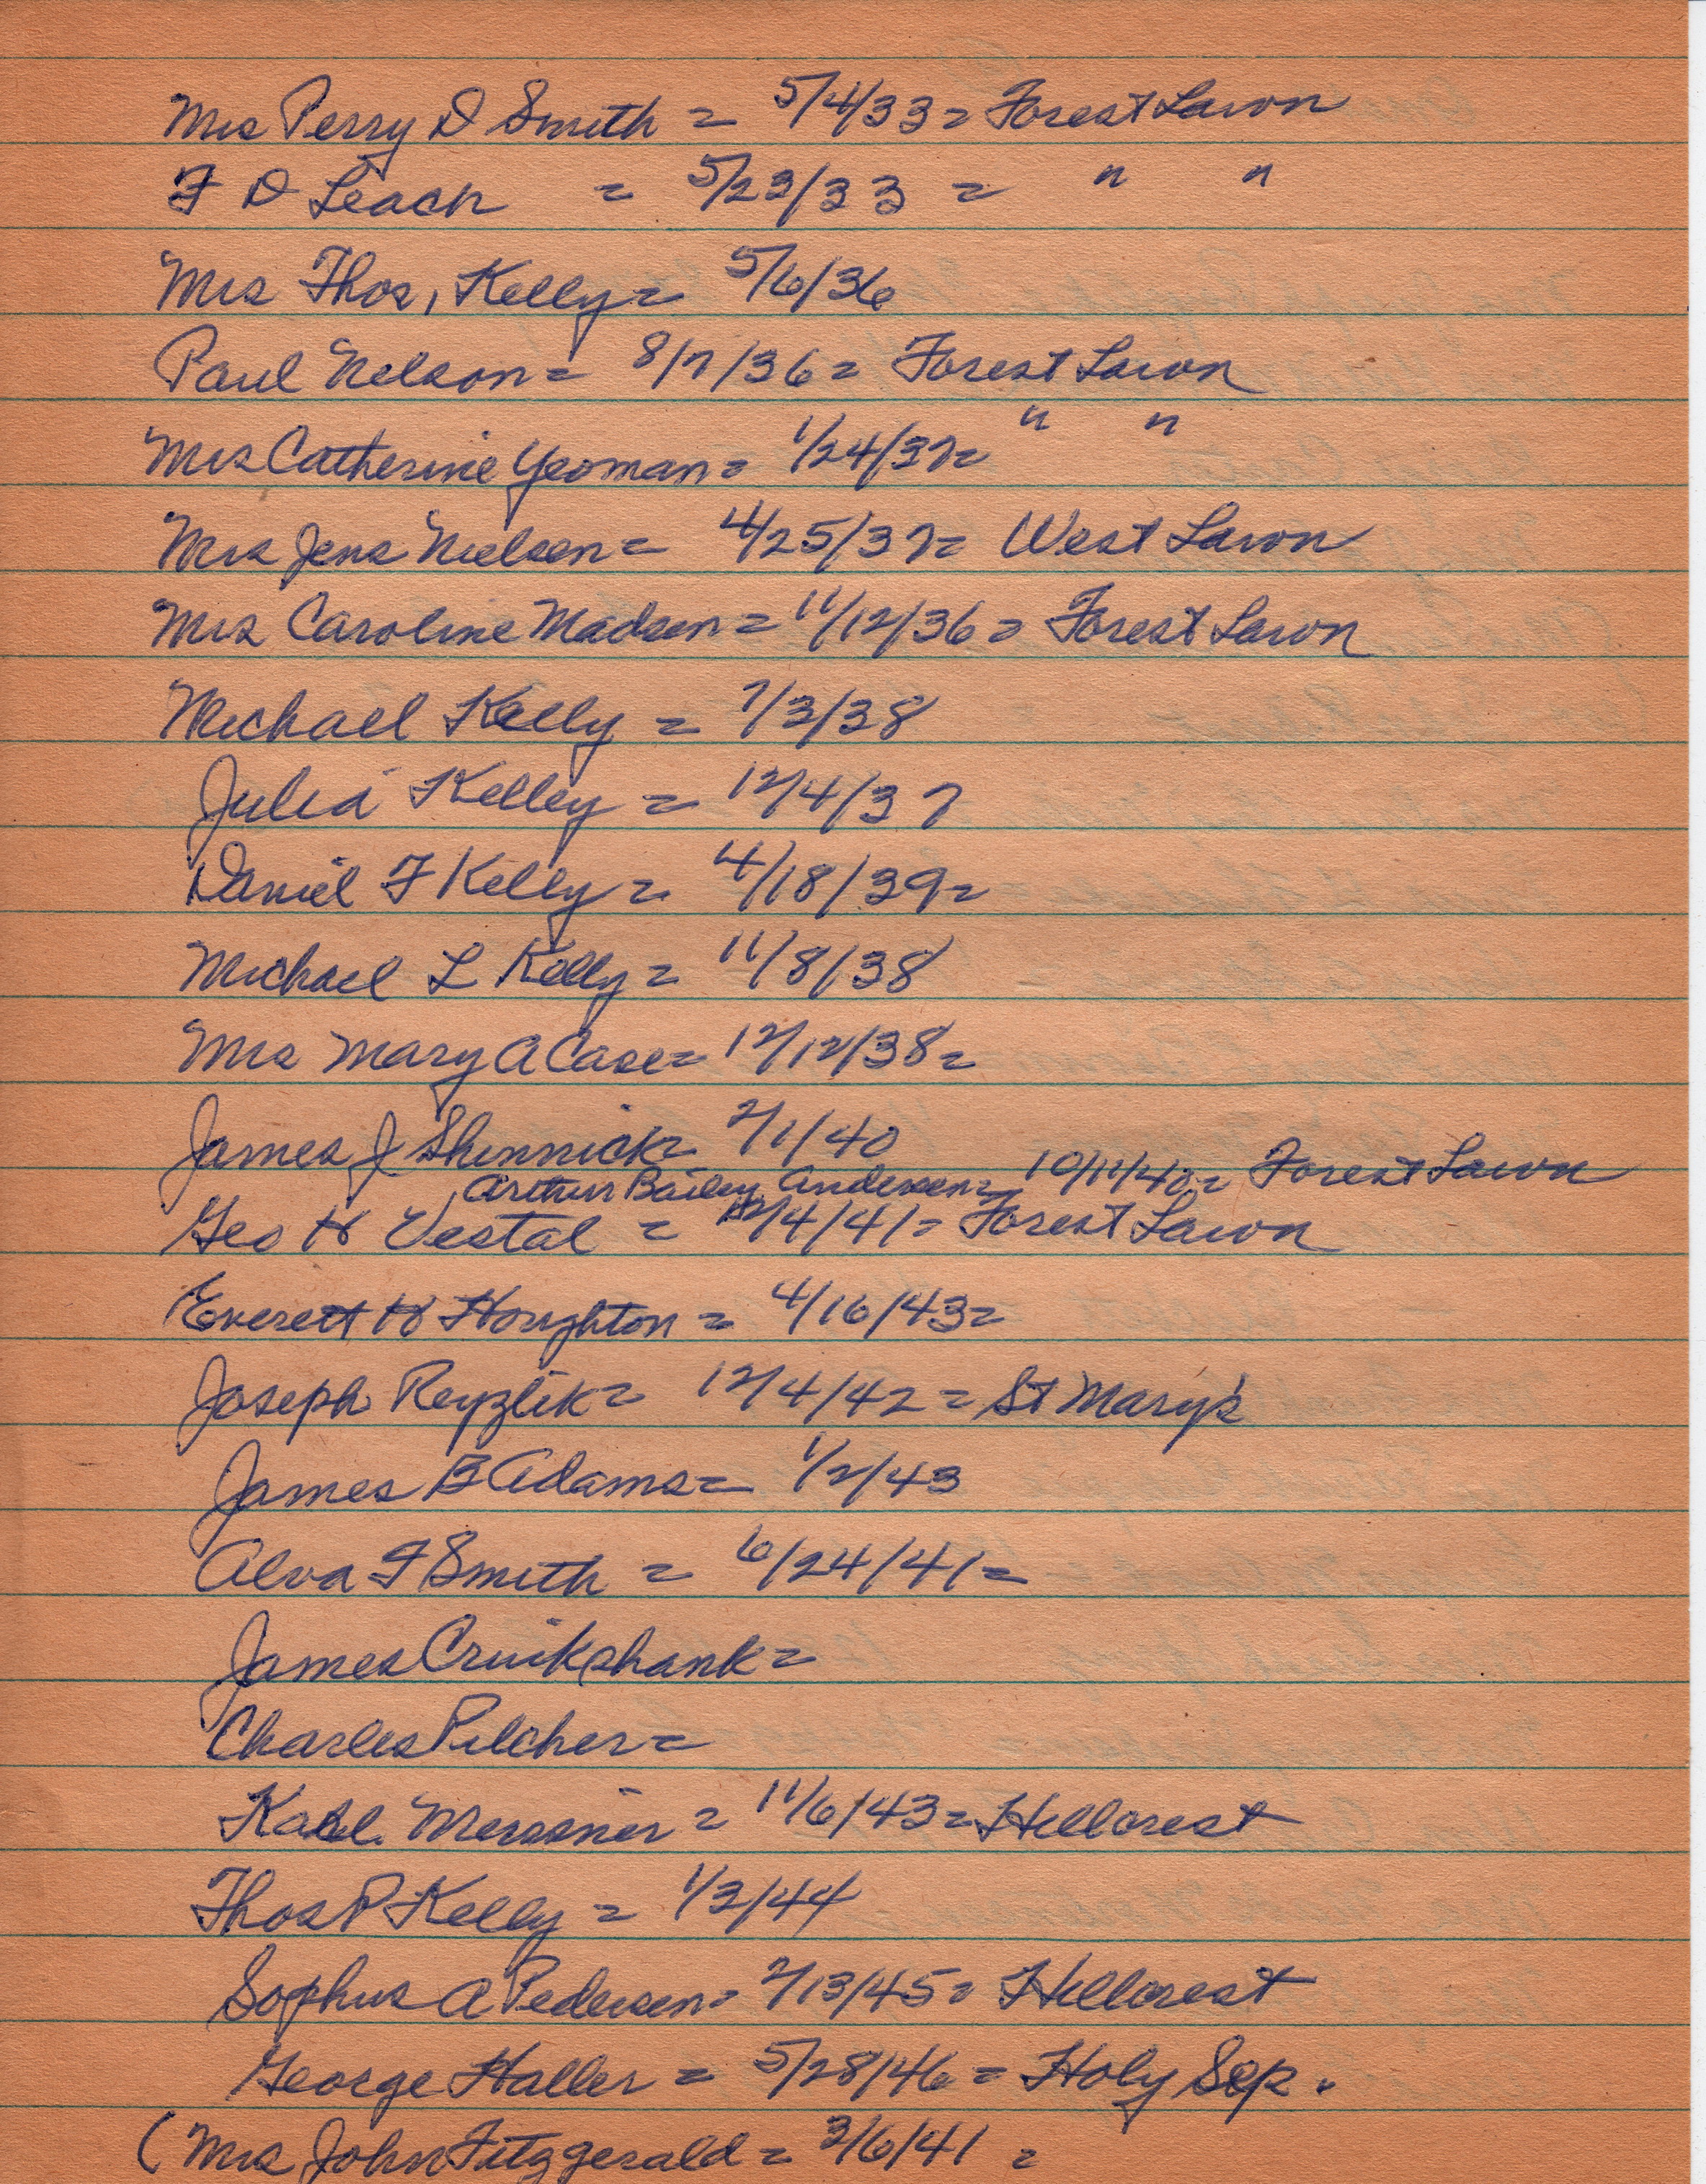 Mrs Perry D Smith = 5/4/33 = Forest Lawn
F D Leach = 5/23/33 = " "
Mrs Thos, Kelly = 5/6/36
Paul Nelson = 8/7/36 = Forest Lawn
Mrs Catherine Yeoman = 1/24/37 = " "
Mrs Jens Nielsen = 4/25/37 = West Lawn
Mrs Caroline Madsen = 11/12/36 = Forest Lawn
Michael Kelly = 7/3/38
Julia Kelley = 12/4/37
Daniel F Kelly = 4/18/39 =
Michael L Kelly = 11/8/38
Mrs Mary A Case = 12/12/38 =
James J Shinnick = 2/1/40
Arthur Bailey Andersen = 10/11/40 = Forest Lawn
Geo H Vestal = 12/4/41 = Forest Lawn
Everett H Houghton = 4/16/43 =
Joseph Reyzlik = 12/4/42 = St Mary's
James B Adams = 1/2/43
Alva F Smith = 6/24/41 =
James Cruikshank =
Charles Pilcher =
Karl. Meissner = 11/6/43 = Hillcrest
Thos P Kelly = 1/3/44
Sophus A Pedersen = 2/13/45 = Hillcrest
George Haller = 5/28/46 = Holy Sep.
(Mrs John Fitzgerald = 3/6/41 =